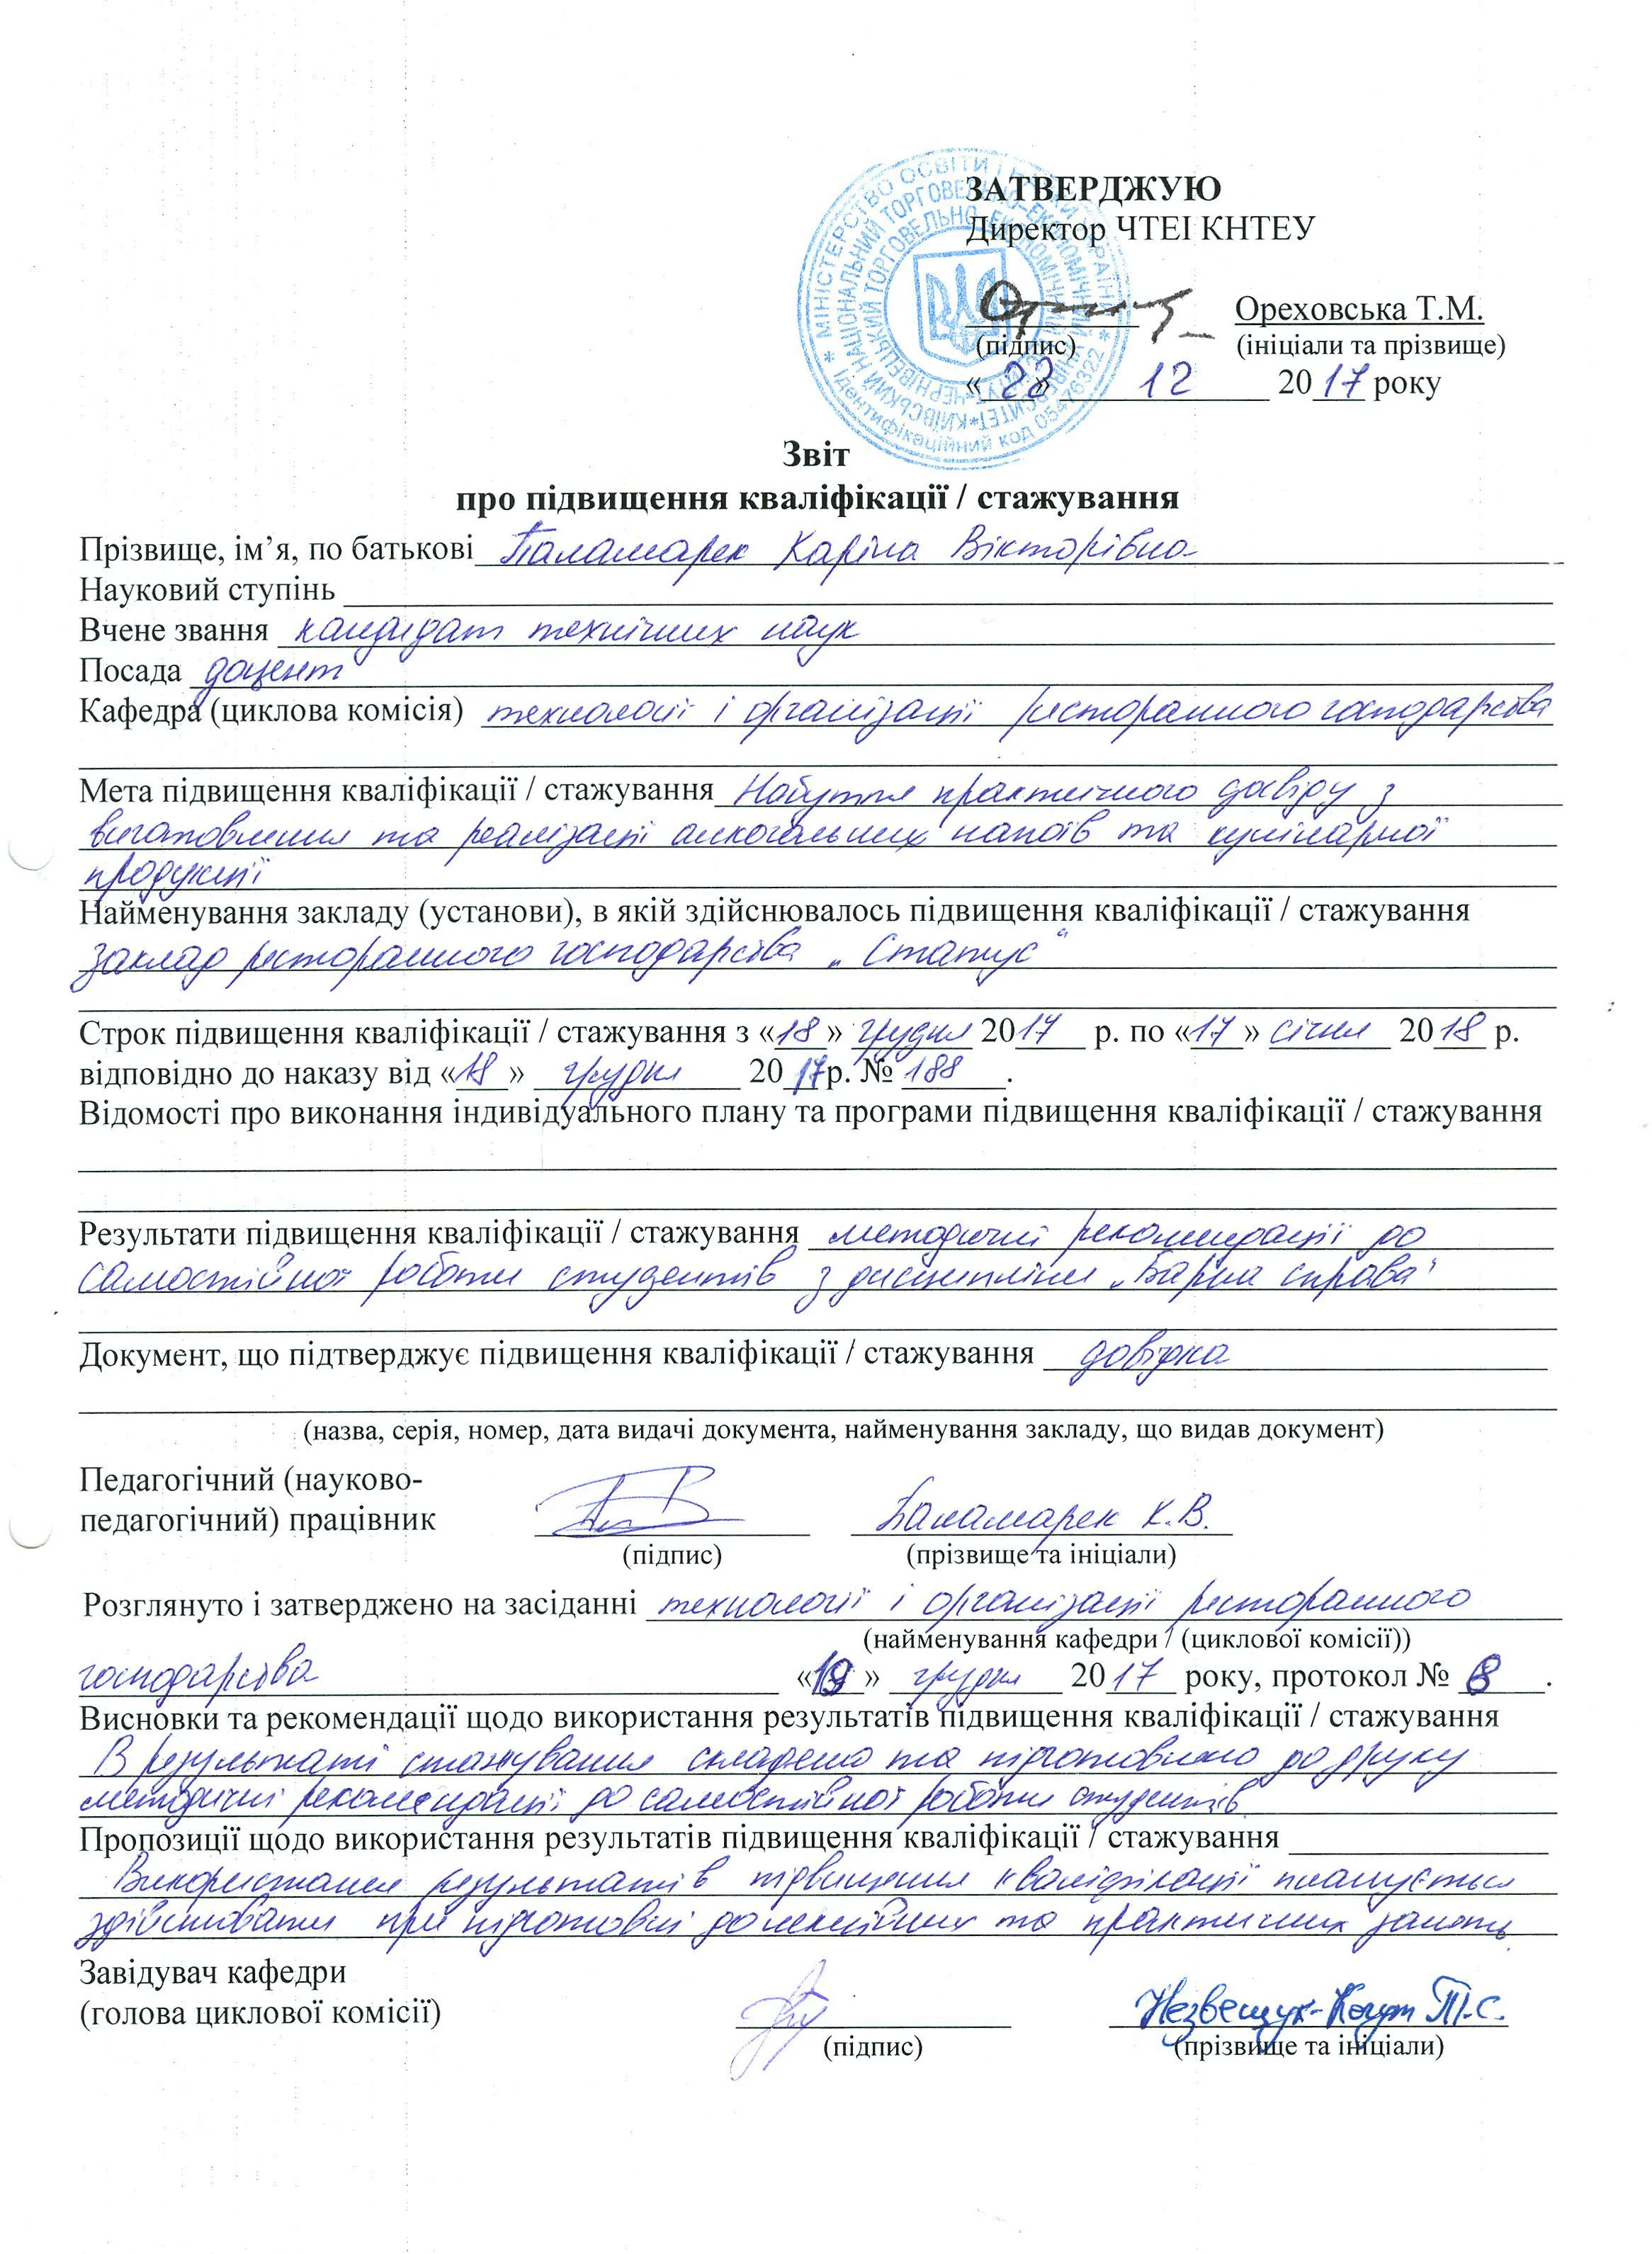 ЗАТВЕРДЖУЮ
Директор ЧТЕІ КНТЕУ
МІНІСТЕРСТВО ОСВІТИ І НАУКИ УКРАЇНИ * Ідентифікаційний код 05476322 *
КИЇВСЬКИЙ НАЦІОНАЛЬНИЙ ТОРГОВЕЛЬНО-ЕКОНОМІЧНИЙ УНІВЕРСИТЕТ *
Ореховська Т.М.
(підпис) (ініціали та прізвище)
«22» 12 2017 року
Звіт
про підвищення кваліфікації / стажування
Прізвище, ім’я, по батькові Паламарек Каріна Вікторівна
Науковий ступінь
Вчене звання кандидат технічних наук
Посада доцент
Кафедра (циклова комісія) технології і організації ресторанного господарства
Мета підвищення кваліфікації / стажування Набуття практичного досвіду з
виготовлення та реалізації алкогольних напоїв та кулінарної
продукції
Найменування закладу (установи), в якій здійснювалось підвищення кваліфікації / стажування
заклад ресторанного господарства „Статус“
Строк підвищення кваліфікації / стажування з «18» грудня 2017 р. по «17» січня 2018 р.
відповідно до наказу від «18» грудня 2017 р. № 188.
Відомості про виконання індивідуального плану та програми підвищення кваліфікації / стажування
Результати підвищення кваліфікації / стажування методичні рекомендації до
самостійної роботи студентів з дисципліни „Барна справа“
Документ, що підтверджує підвищення кваліфікації / стажування довідка
(назва, серія, номер, дата видачі документа, найменування закладу, що видав документ)
Педагогічний (науково-
педагогічний) працівник Паламарек К.В.
(підпис) (прізвище та ініціали)
Розглянуто і затверджено на засіданні технології і організації ресторанного
(найменування кафедри / (циклової комісії))
господарства «19» грудня 2017 року, протокол № 8.
Висновки та рекомендації щодо використання результатів підвищення кваліфікації / стажування
В результаті стажування складено та підготовлено до друку
методичні рекомендації до самостійної роботи студентів.
Пропозиції щодо використання результатів підвищення кваліфікації / стажування
Використання результатів підвищення кваліфікації планується
здійснювати при підготовці до лекційних та практичних занять.
Завідувач кафедри
(голова циклової комісії) Незвещук-Когут Т.С.
(підпис) (прізвище та ініціали)